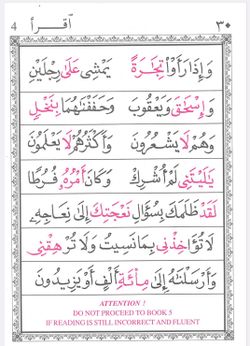 4 اقرأ ٣٠
وَإِذَا رَأَوْا۟ تِجَـٰرَةً يَمْشِى عَلَىٰ رِجْلَيْنِ
وَإِسْحَـٰقَ وَيَعْقُوبَ وَحَفَفْنَـٰهُمَا بِنَخْلٍ
وَهُمْ لَا يَشْعُرُونَ وَأَكْثَرُهُمْ لَا يَعْلَمُونَ
يَـٰلَيْتَنِى لَمْ أُشْرِكْ وَكَانَ أَمْرُهُۥ فُرُطًا
لَقَدْ ظَلَمَكَ بِسُؤَالِ نَعْجَتِكَ إِلَىٰ نِعَاجِهِ
لَا تُؤَاخِذْنِى بِمَا نَسِيتُ وَلَا تُرْهِقْنِى
وَأَرْسَلْنَـٰهُ إِلَىٰ مِا۟ئَةِ أَلْفٍ أَوْ يَزِيدُونَ
ATTENTION !
DO NOT PROCEED TO BOOK 5
IF READING IS STILL INCORRECT AND FLUENT